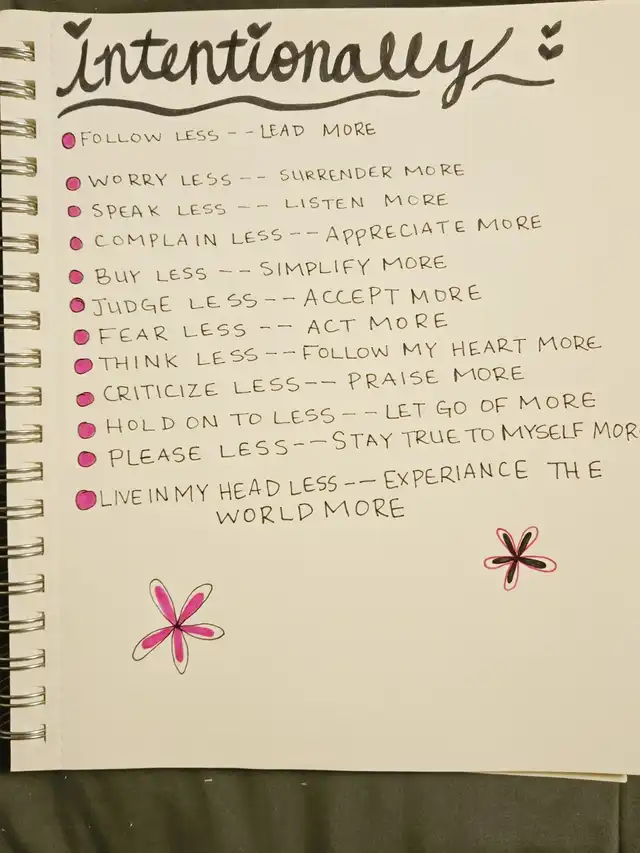 intentionally
FOLLOW LESS -- LEAD MORE
WORRY LESS -- SURRENDER MORE
SPEAK LESS -- LISTEN MORE
COMPLAIN LESS -- APPRECIATE MORE
BUY LESS -- SIMPLIFY MORE
JUDGE LESS -- ACCEPT MORE
FEAR LESS -- ACT MORE
THINK LESS -- FOLLOW MY HEART MORE
CRITICIZE LESS -- PRAISE MORE
HOLD ON TO LESS -- LET GO OF MORE
PLEASE LESS -- STAY TRUE TO MYSELF MOR
LIVE IN MY HEAD LESS -- EXPERIANCE THE
WORLD MORE